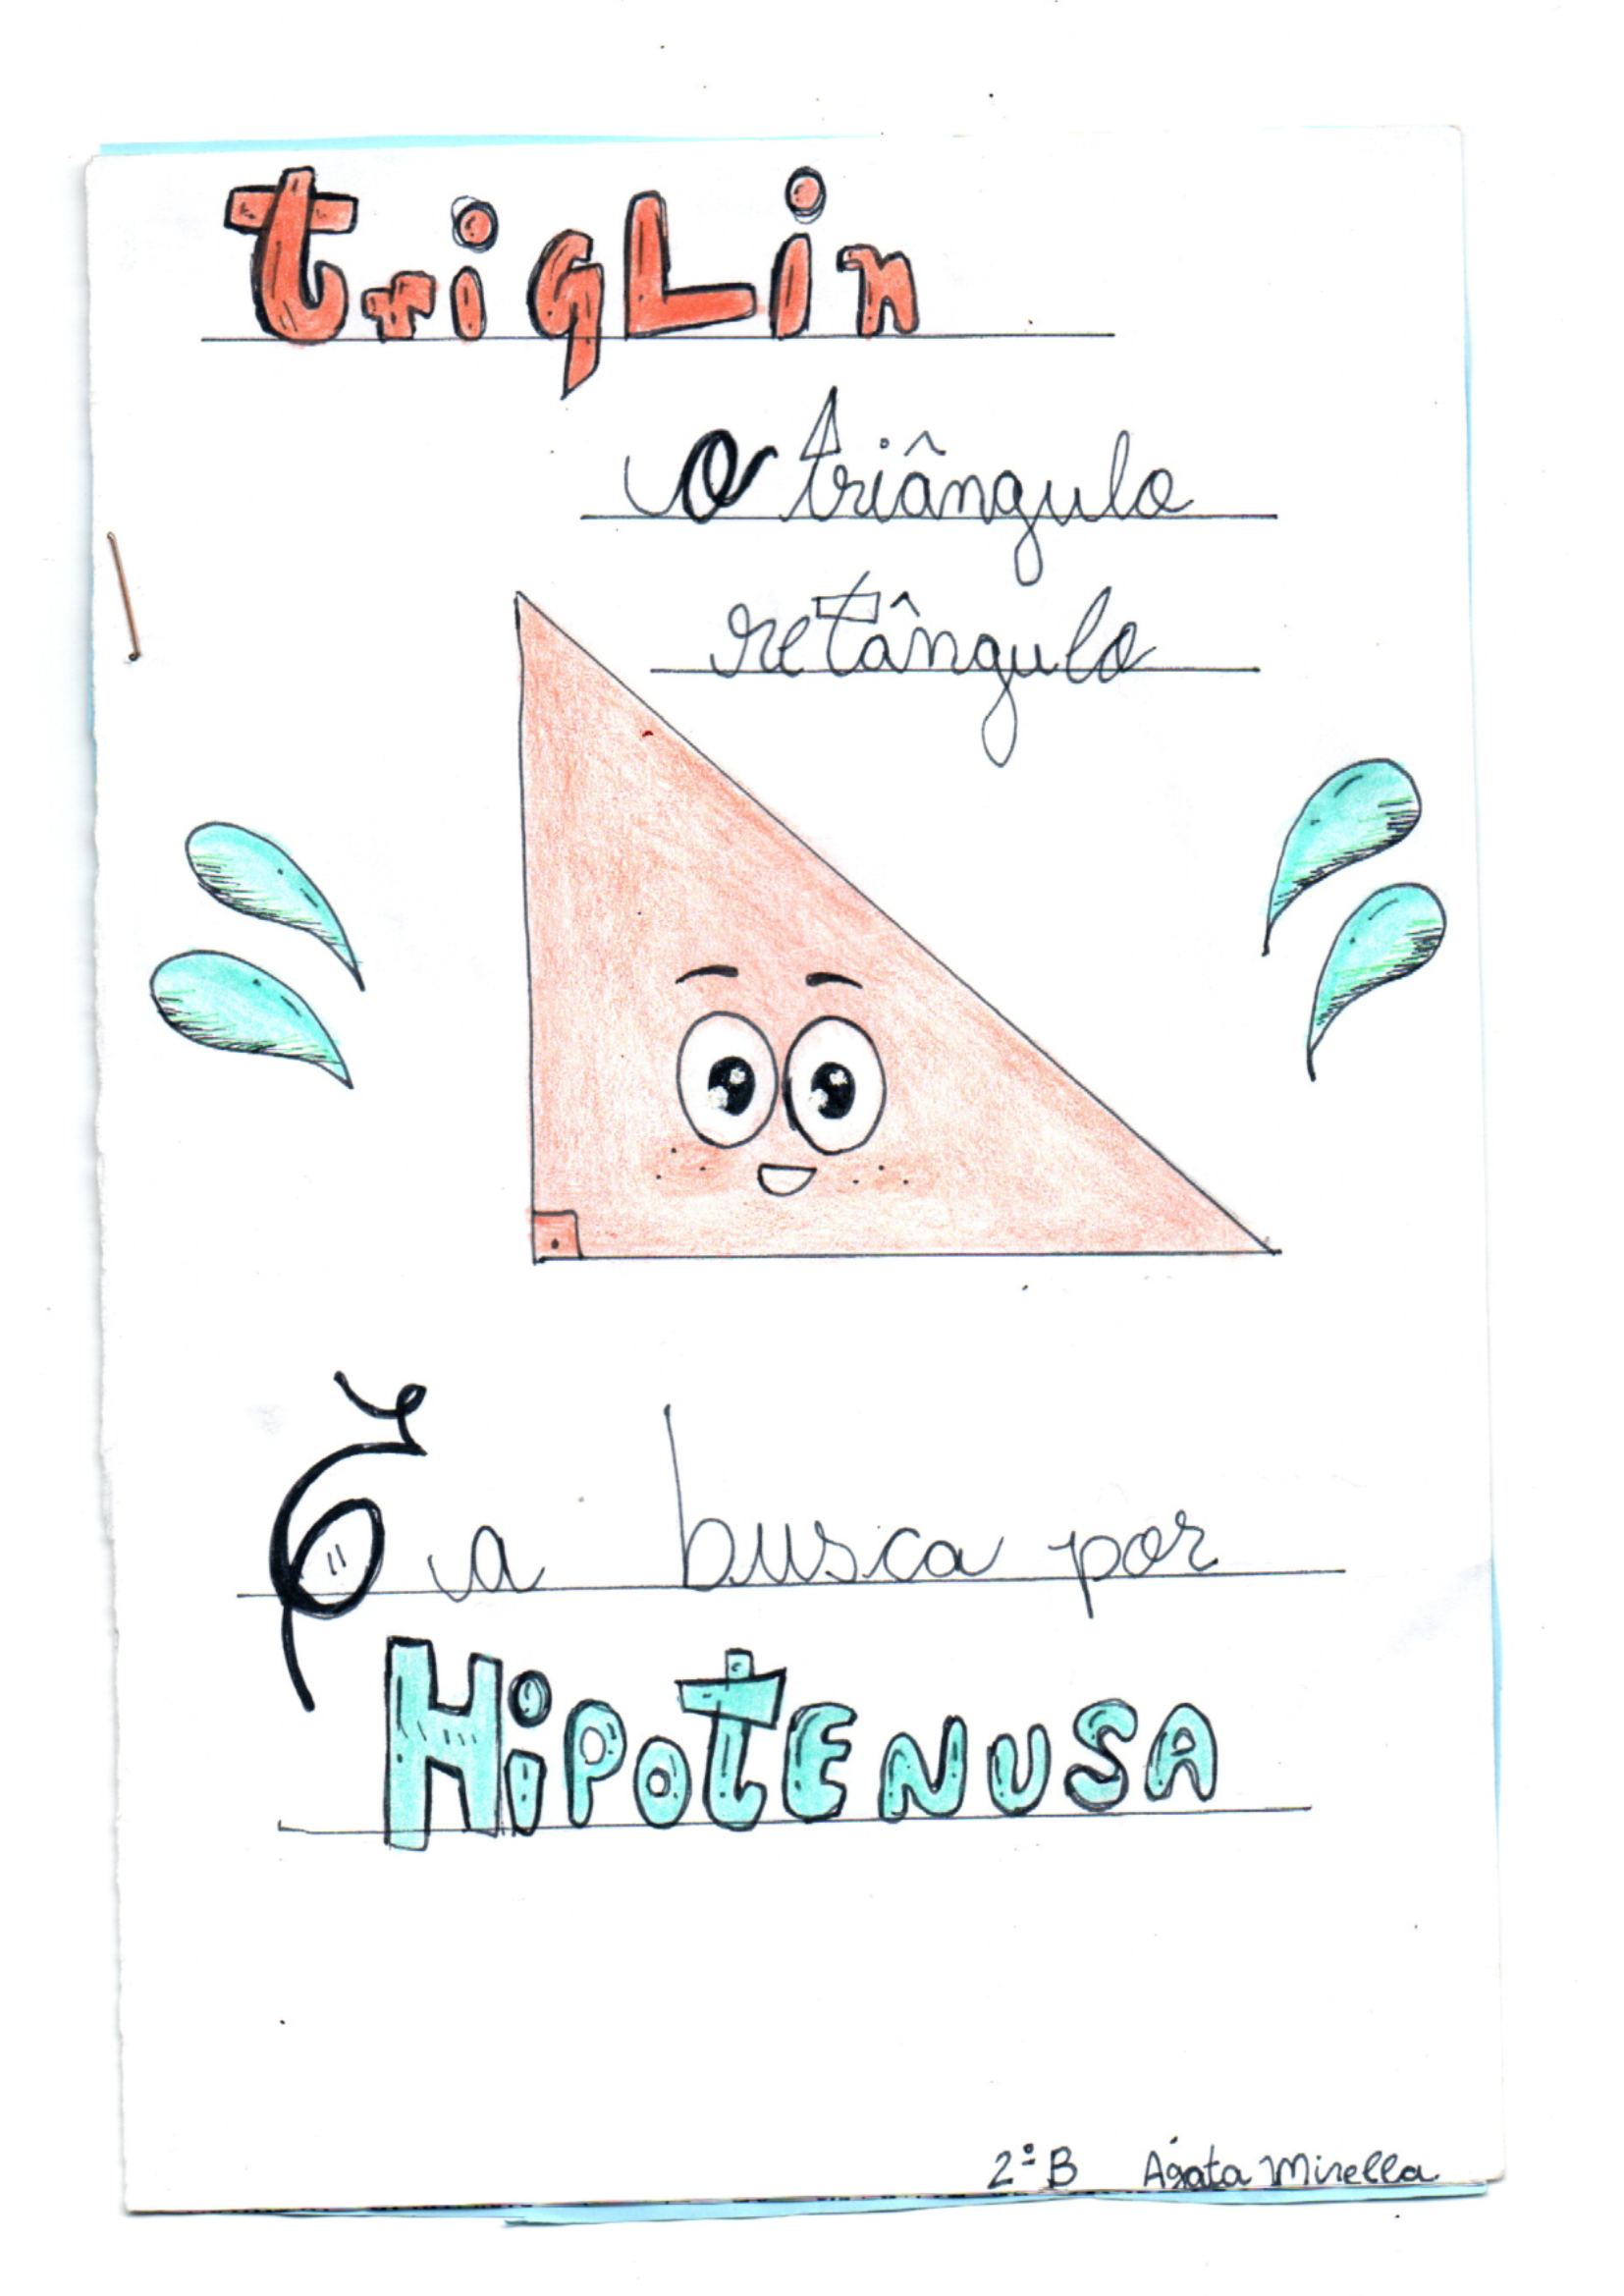 TrigLin
o triângulo
retângulo
E a busca por
HiPoTENUSA
2º B Ágata Mirella